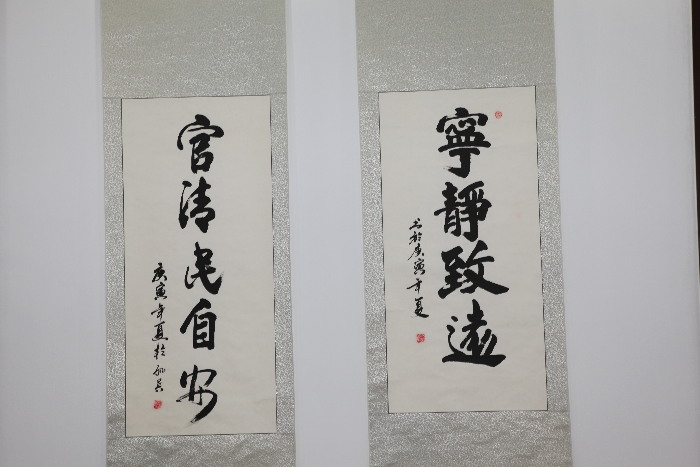 寧靜致遠
书於庚寅年夏
官清民自安
庚寅年夏於